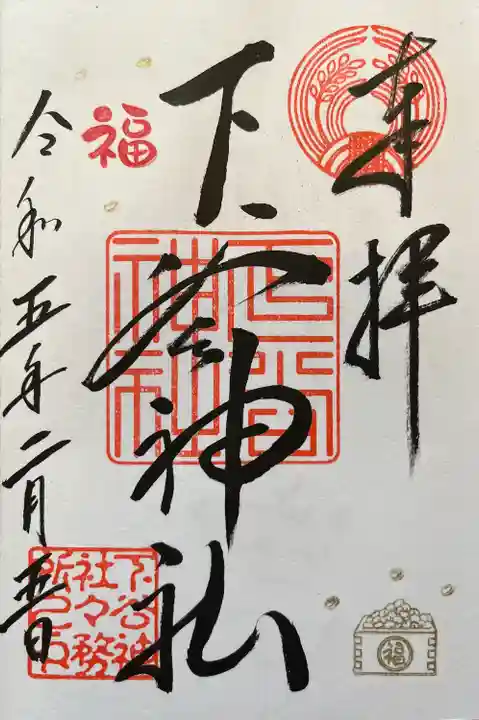 奉拝
下谷神社
下谷神社
福
令和五年二月
下谷神
社々務
所之印
福